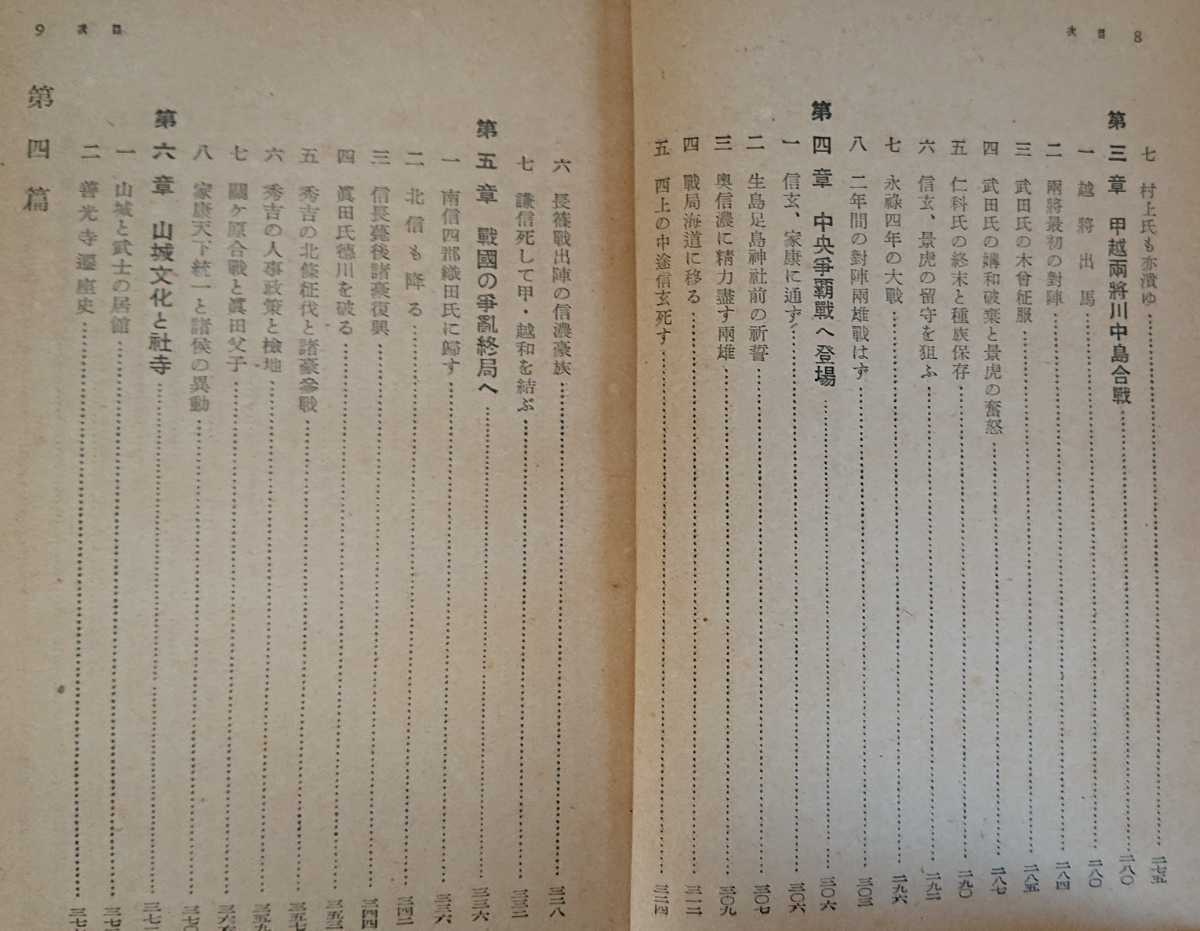 8 目次
七 村上氏も亦潰ゆ……二七五
第三章 甲越兩將川中島合戰……二八〇
一 越將出馬……二八〇
二 兩將最初の對陣……二八四
三 武田氏の木曾征服……二八五
四 武田氏の講和破棄と景虎の奮怒……二八七
五 仁科氏の終末と種族保存……二九〇
六 信玄、景虎の留守を狙ふ……二九二
七 永祿四年の大戰……二九六
八 二年間の對陣兩雄戰はず……三〇三
第四章 中央爭覇戰へ登場……三〇六
一 信玄、家康に通ず……三〇六
二 生島足島神社前の祈誓……三〇七
三 奧信濃に精力盡す兩雄……三〇九
四 戰局海道に移る……三一二
五 西上の中途信玄死す……三二四
9 目次
六 長篠戰出陣の信濃豪族……三二八
七 謙信死して甲・越和を結ぶ……三三二
第五章 戰國の爭亂終局へ……三三六
一 南信四郡織田氏に歸す……三三六
二 北信も降る……三四二
三 信長薨後諸豪復興……三四四
四 眞田氏德川を破る……三五
五 秀吉の北條征伐と諸豪參戰……三五七
六 秀吉の人事政策と檢地……三五九
七 關ヶ原合戰と眞田父子……三六
八 家康天下統一と諸侯の異動……三七〇
第六章 山城文化と社寺……三七
一 山城と武士の居館……三七
二 善光寺遷座史……三七
第四篇